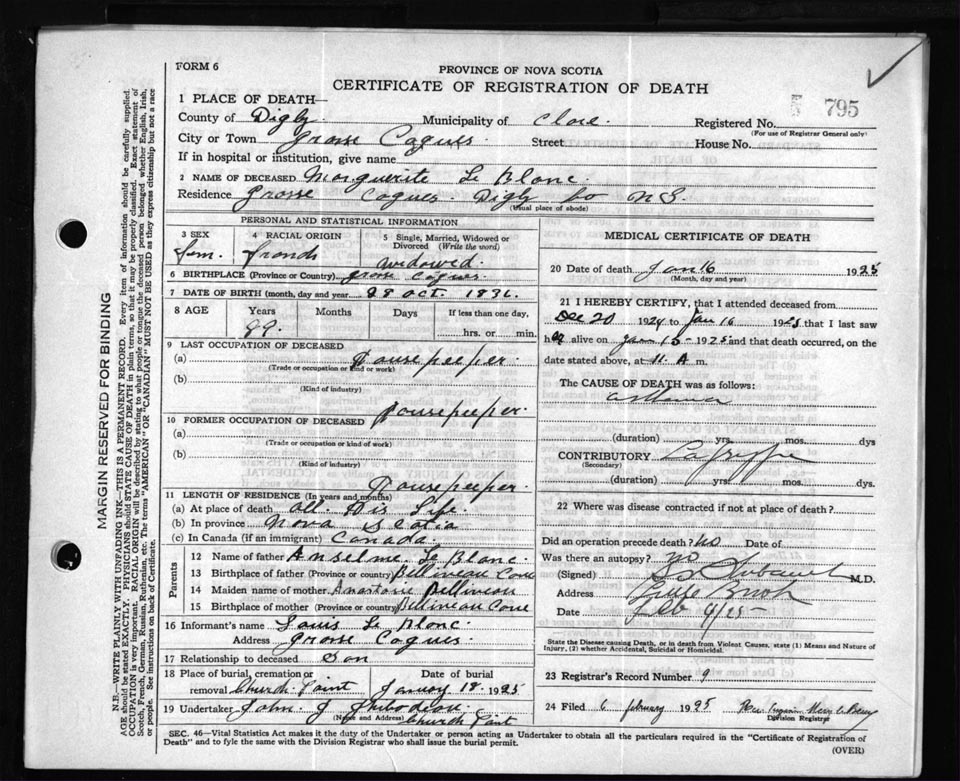 FORM 6
PROVINCE OF NOVA SCOTIA
CERTIFICATE OF REGISTRATION OF DEATH
5 795
1 PLACE OF DEATH—
County of Digby Municipality of Clare. Registered No.
(For use of Registrar General only)
City or Town Grosse Coques. Street House No.
If in hospital or institution, give name
2 NAME OF DECEASED Marguerite Le Blanc.
Residence Grosse Coques. Digby Co N.S.
(Usual place of abode)
PERSONAL AND STATISTICAL INFORMATION
3 SEX Fem.
4 RACIAL ORIGIN French
5 Single, Married, Widowed or Divorced (Write the word) widowed.
6 BIRTHPLACE (Province or Country) Grosse Coques.
7 DATE OF BIRTH (month, day and year 28 oct. 1836.
8 AGE Years Months Days If less than one day,
89. hrs. or min.
9 LAST OCCUPATION OF DECEASED
(a) Housekeeper.
(Trade or occupation or kind or work)
(b)
(Kind of industry)
10 FORMER OCCUPATION OF DECEASED Housekeeper.
(a)
(Trade or occupation or kind of work)
(b)
(Kind of industry)
Housekeeper.
11 LENGTH OF RESIDENCE (In years and months)
(a) At place of death all. His Life.
(b) In province Nova Scotia
(c) In Canada (if an immigrant) Canada.
Parents
12 Name of father Anselme Le Blanc.
13 Birthplace of father (Province or country) Bellineau Cove
14 Maiden name of mother Bellineau
15 Birthplace of mother (Province or country) Bellineau Cove
16 Informant's name Louis Le Blanc.
Address Grosse Coques.
17 Relationship to deceased Son
18 Place of burial, cremation or removal Church Point
Date of burial January 18. 1925
19 Undertaker John. J Thibodeau.
(Name and Address) Church Point
MEDICAL CERTIFICATE OF DEATH
20 Date of death Jan 16 1925
(Month, day and year)
21 I HEREBY CERTIFY, that I attended deceased from
Dec 20 1924 to Jan 16 1925 that I last saw
her alive on Jan 15 - 1925 and that death occurred, on the
date stated above, at 11. A m.
The CAUSE OF DEATH was as follows:
asthma
(duration) yrs. mos. dys
CONTRIBUTORY La grippe
(Secondary)
(duration) yrs. mos. dys.
22 Where was disease contracted if not at place of death?
Did an operation precede death? No Date of
Was there an autopsy? No
(Signed) M.D.
Address
Date Feb 4/25-
State the Disease causing Death, or in death from Violent Causes, state (1) Means and Nature of
Injury, (2) whether Accidental, Suicidal or Homicidal.
23 Registrar's Record Number 9
24 Filed 6 february 1925
Division Registrar
SEC. 46—Vital Statistics Act makes it the duty of the Undertaker or person acting as Undertaker to obtain all the particulars required in the "Certificate of Registration of
Death" and to fyle the same with the Division Registrar who shall issue the burial permit.
(OVER)
MARGIN RESERVED FOR BINDING
N.B.—WRITE PLAINLY WITH UNFADING INK—THIS IS A PERMANENT RECORD. Every item of information should be carefully supplied.
AGE should be stated EXACTLY. PHYSICIANS should STATE CAUSE OF DEATH in plain terms, so that it may be properly classified. Exact statement of
OCCUPATION is very important. RACIAL ORIGIN will be described by stating to what people or tongue the deceased person belonged whether English, Irish,
Scotch, French, German, Russian, Ruthenian, etc. The terms "AMERICAN" OR "CANADIAN" MUST NOT BE USED as they express citizenship but not a race
or people. See instructions on back of Certificate.